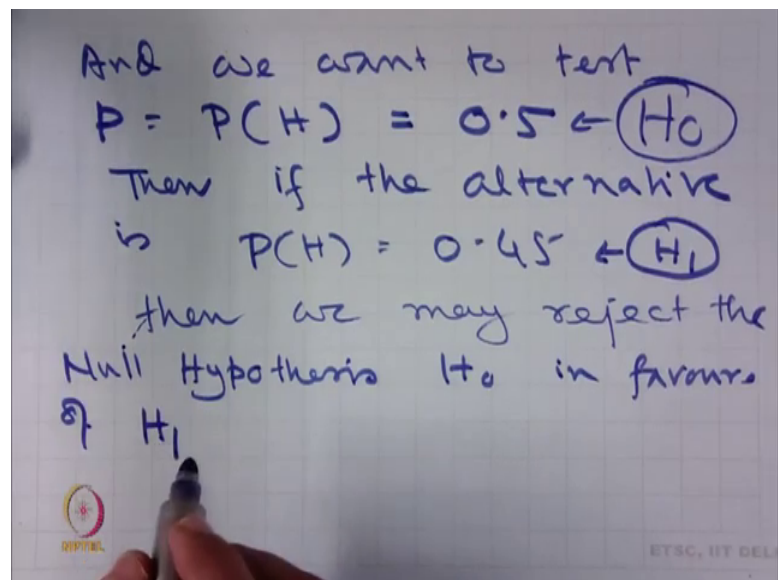 And we want to test
P = P(H) = 0.5 ← H0
Then if the alternative
is P(H) = 0.45 ← H1
then we may reject the
Null Hypothesis H0 in favour
of H1
NPTEL
ETSC, IIT DELH